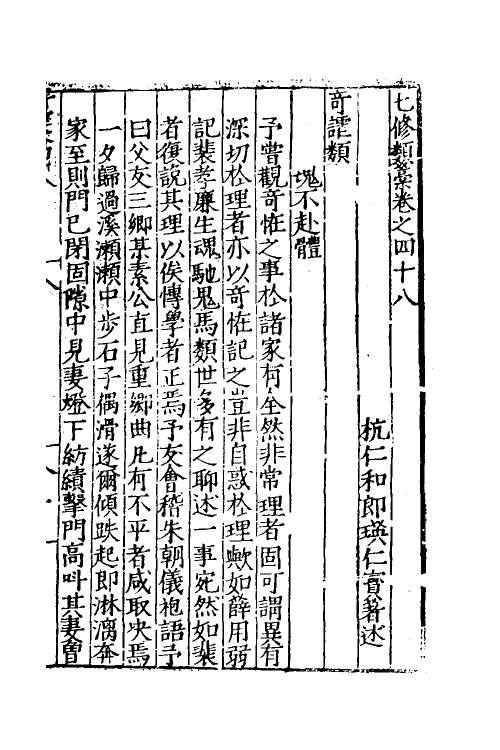 七修類藁卷之四十八
杭仁和郎瑛仁寳著述
奇謔類
魂不赴體
予嘗觀竒恠之事於諸家有全然非常理者固可謂異有
深切於理者亦以奇恠記之豈非自惑於理歟如薛用弱
記裴孝廉生魂馳鬼馬類世多有之聊述一事宛然如裴
者復説其理以俟博學者正焉予友會稽朱朝儀袍語予
曰父友三鄉某素公直見重鄉曲凢有不平者咸取決焉
一夕歸過溪瀨瀨中步石子偶滑遂爾傾跌起即淋漓奔
家至則門已閉固隙中見妻燈下紡績擊門高呌其妻曾